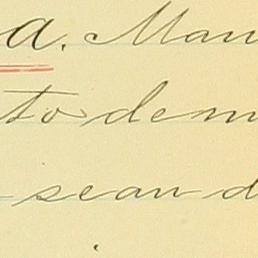 a. Man
to dem
sean d